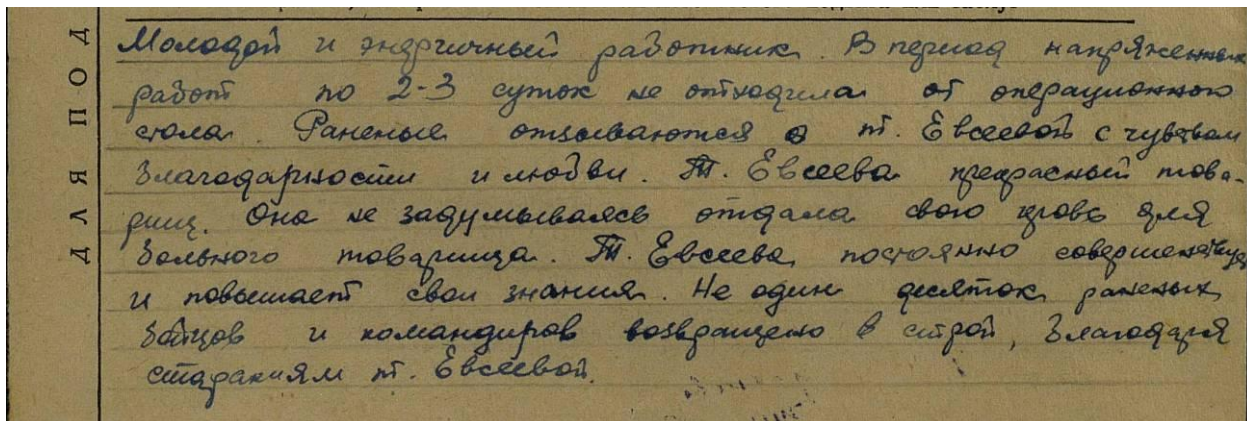 Молодой и энергичный работник. В период напряженных
работ по 2-3 суток не отходила от операционного
стола. Раненые отзываются о т. Евсеевой с чувством
благодарности и любви. Т. Евсеева прекрасный това-
рищ. Она не задумываясь отдала свою кровь для
больного товарища. Т. Евсеева постоянно совершенствует
и повышает свои знания. Не один десяток раненых
бойцов и командиров возвращено в строй, благодаря
стараниям т. Евсеевой.
ДЛЯ ПОД